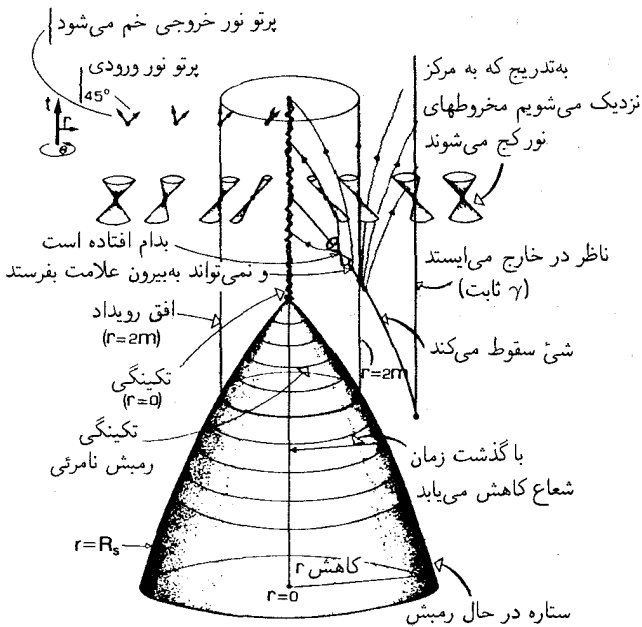 پرتو نور خروجی خم می‌شود
پرتو نور ورودی
45°
t
r
θ
به‌تدریج که به مرکز
نزدیک می‌شویم مخروطهای
نور کج می‌شوند
بدام افتاده است
و نمی‌تواند به‌بیرون علامت بفرستد
ناظر در خارج می‌ایستد
(γ ثابت)
افق رویداد
(r=2m)
شئ سقوط می‌کند
r=2m
تکینگی
(r=0)
تکینگی
رمبش نامرئی
با گذشت زمان
شعاع کاهش می‌یابد
r=Rs
کاهش r
r=0
ستاره در حال رمبش